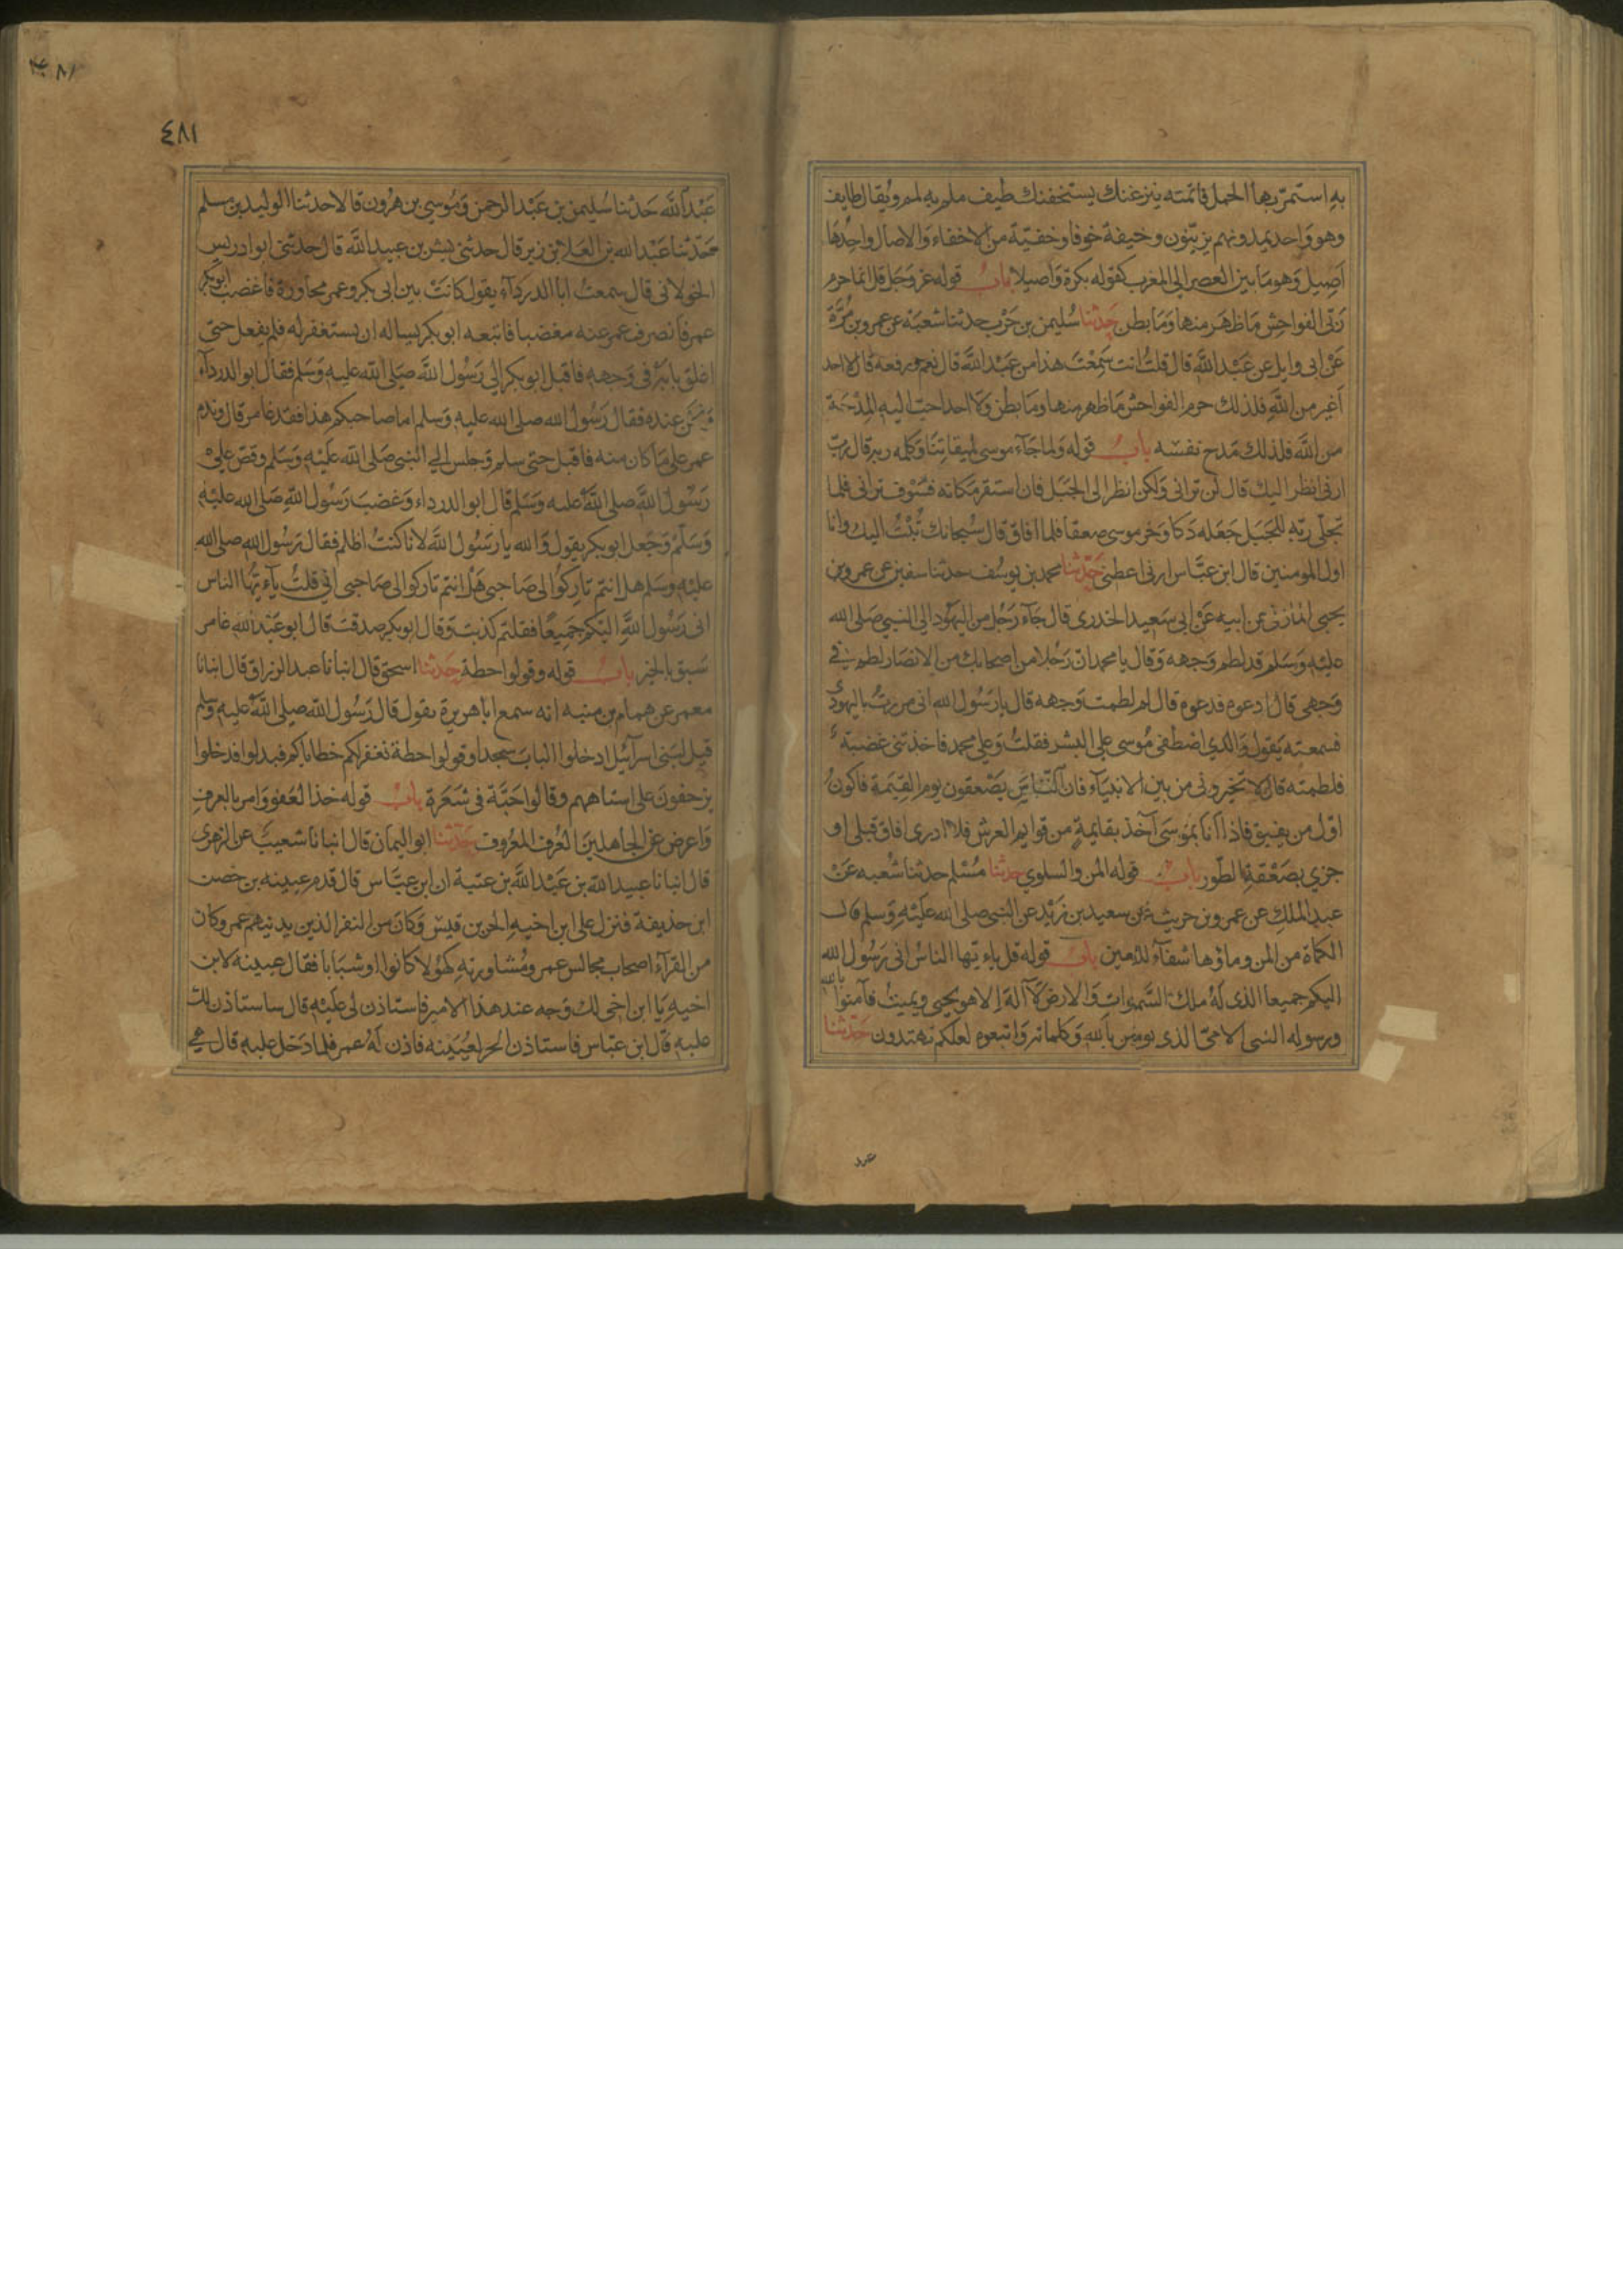 به استمرّ بها الحمل فاتمته ينزغنك يستخفنك طيف ملم به لمم ويُقال طايف
وهو وَاحد يمدونهم يزيّنون وخيفة خوفا وخفية من الاخفاء وَالاصال واحدُهَا
اَصِيل وَهو مَا بين العصر الى المغرب كقوله بكرة وَاصيلا باب قوله عز وَجَل قل انما حرم
رَبّى الفواحِش مَا ظهَر منها وَمَا بطن حَدثنا سُليمن بن حَرْب حدثنا شعبَة عن عمرو بن مُرَّة
عَنْ ابى وايل عن عَبْد اللَّه قال قلتُ انت سَمِعْتَ هذا من عَبْد اللَّه قال نعم ورفعه قال لا احد
اَغير من اللَّهِ فلذلك حرم الفواحش مَا ظهر منها ومَا بطن وَلا احد احبّ اليه المِدْحَة
من اللَّه فلذلك مَدح نفسَه باب قوله وَلما جَآء موسى لميقاتِنَا وَكلمه ربه قال ربّ
ارنى انظر اليك قال لَن ترانى وَلكن انظر الى الجَبَل فان استقر مكانه فسَوْف ترانى فلما
تجلّى ربّه للجَبَل جَعَله دَكا وَخر موسى صعقا فلما افاق قال سُبحانك تُبْتُ اليك وانا
اول المومنين قال ابن عبَّاس ارنى اعطنى حَدّثنا محمد بن يوسُف حدثنا سفين عن عمرو بن
يحيى المازنى عن ابيه عَنْ ابى سَعِيد الخدرى قال جَآء رَجُل من اليَهُود الى النبي صَلى الله
عليْهِ وَسَلم قد لطم وَجهه وَقال يا محمد انّ رَجُلا من اصحابك من الانصَار لطم فى
وَجهى قال ادعوه فدعوه قال لم لطمت وَجهه قال يا رَسُول الله انى مررتُ باليهود
فسمعته يَقول وَالذي اصْطفى مُوسى على البشر فقلتُ وَعلى محمد فاخذتنى غضبة
فلطمته قال لا تخيرونى من بين الانبيَآء فان النَّاسَ يَصْعقون يوم القيمَة فاكونُ
اوّل من يفيق فاذا اَنا بمُوسَى آخذ بقايمةٍ من قوايم العرش فلا ادرى افاق قبلى او
جزي بصَعْقة الطّور باب قوله المن والسلوي حدثنا مُسْلم حدثنا شُعبه عَنْ
عبد الملك عن عمرو بن حريث عن سعيد بن زيْد عن النبى صلى الله عَليْهِ وَسلم قال
الكماة من المن وماؤها شفآء للعين باب قوله قل ياءيّها الناسُ انى رَسُول الله
اليكم جميعا الذى لَهُ ملك السَّموات وَالارض لَآ الهَ اِلا هو يحيى ويميتُ فآمنوا بالله
ورسوله النبى الامىّ الذى يومن بالله وَكلماته وَاتبعوه لعلكم تهتدون حَدّثنا
عبد
٤٨١
٤٨١
عَبْد اللَّه حَدثنا سُليمن بن عَبْد الرحمن وَمُوسي بن هرُون قالا حدثنا الوليد بن مسلم
حَدّثنا عَبْد الله بن العَلا بن زبر قال حدثنى بسْر بن عبيد اللَّه قال حدثنى ابو ادريس
الخولانى قال سمعتُ ابا الدردَآء يقول كانتْ بين ابى بكر وعمر محاورة فاغضبَ ابو بكر
عمر فانصرف عمر عنه مغضبا فاتبعه ابو بكر يساله ان يستغفر له فلم يفعل حتى
اغلق بابَه فى وَجهه فاقبل ابو بكر الى رَسُول اللَّه صَلى اللّه عليه وَسَلم فقال ابو الدردآء
ونحن عنده فقال رَسُول الله صلى الله عليه وَسلم اما صاحبكم هذا فقد غامر قال وندم
عمر على مَا كان منه فاقبل حتى سلم وَجلس الى النبى صَلى اللَّه عَليْه وَسَلم وقصّ على
رَسُول اللَّه صلى اللَّه عليه وَسَلم قال ابو الدرداء وَغضبَ رَسُول اللَّهِ صَلى الله عليْهِ
وَسَلّم وَجَعل ابو بكر يقول وَالله يا رَسُول اللَّه لانا كنتُ اظلم فقال رَسُول اللهِ صلى الله
عليْهِ وسَلم هل انتم تاركوا لى صَاحبى هَل انتم تاركوا لى صَاحبى انى قلتُ ياءيّها الناس
انى رَسُول اللَّهِ اليْكم جَميعًا فقلتم كذبتَ وَقال ابو بكر صدقتَ قال ابو عَبْد اللهِ غامر
سَبق بالخير باب قوله وقولوا حطة حَدّثنا اسحق قال انبانا عبد الرزاق قال انبانا
معمر عن همام بن منبه انه سمع ابا هريرة يقول قال رَسُول اللّه صلى اللَّه عليه وَسلم
قيل لبَنى اسرآئيل ادخلوا البابَ سجدا وقولوا حطة نغفر لكم خطاياكم فبدلوا فدخلوا
يزحفونَ على استاههم وقالوا حَبّة فى شعَرة باب قوله خذ العَفو وَامر بالعرف
وَاعرض عَن الجاهلينَ العُرف المعْروف حَدّثنا ابو اليمان قال انبانا شعيبٌ عن الزهرى
قال انبانا عبيد اللّه بن عَبْد اللَّه بن عتبة ان ابن عبَّاس قال قدم عيينه بن حصن
ابن حذيفة فنزل على ابن اخيهِ الحر بن قيس وَكانَ من النفر الذين يدنيهم عمر وكان
من القرآء اصحاب مجالس عمر ومُشاورته كهُولا كانوا او شبَابا فقال عيينه لابن
اخيهِ يَا ابن اخى لك وَجه عند هذا الامير فاستاذن لى عَليْهِ قال ساستاذن لك
عليه قال ابن عبّاس فاستاذن الحر لعُيَيْنه فاذن لَهُ عمر فلما دَخل عليه قال هى